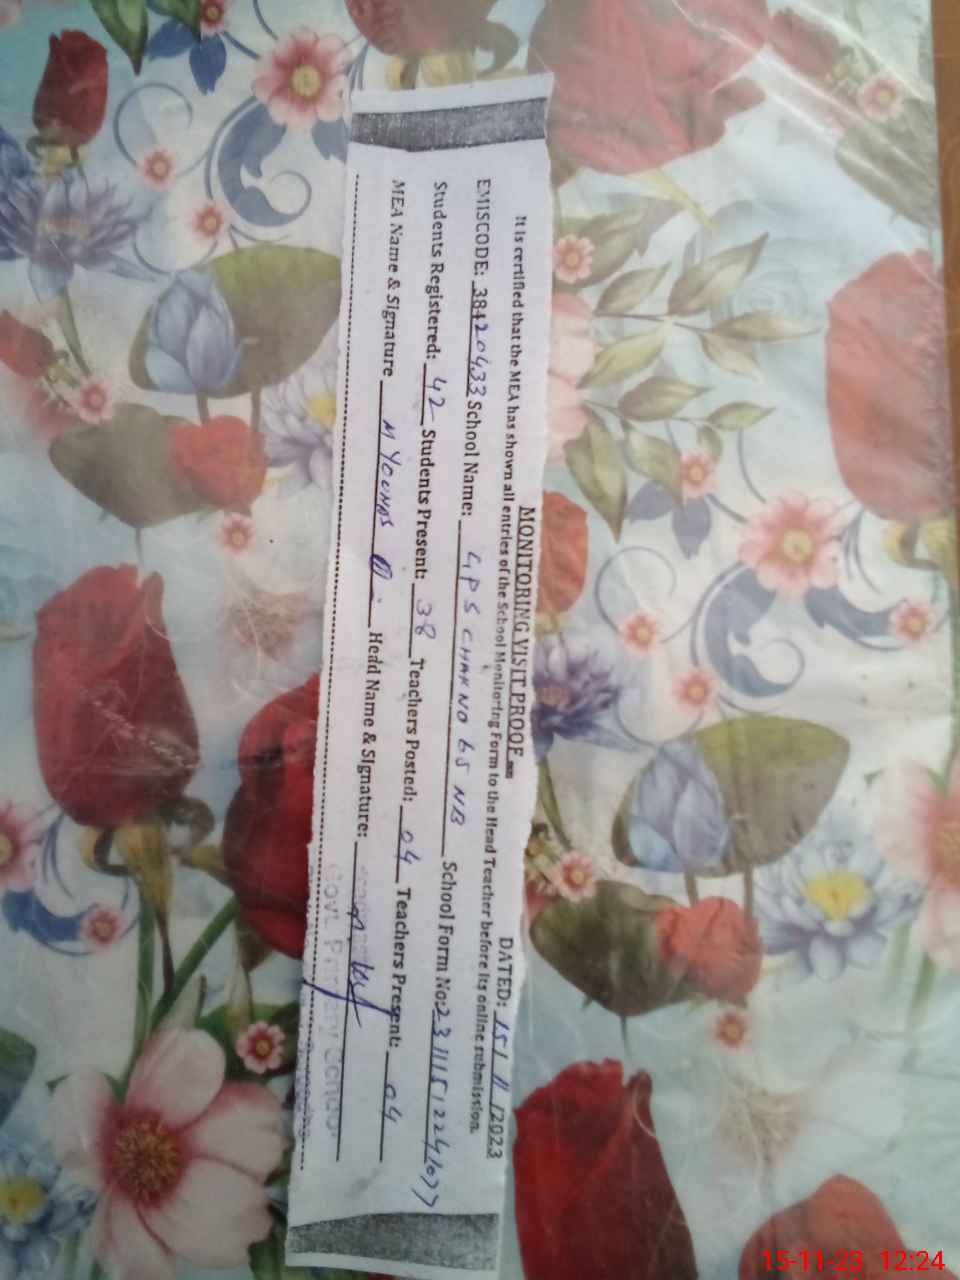 MONITORING VISIT PROOF
DATED: 15/11/2023
It is certified that the MEA has shown all entries of the School Monitoring Form to the Head Teacher before its online submission.
EMISCODE: 38420433 School Name: GPS CHAK NO 65 NB School Form No: 23111512241077
Students Registered: 42 Students Present: 38 Teachers Posted: 04 Teachers Present: 04
MEA Name & Signature M YOUNAS Head Name & Signature:
Govt. Primary School
15-11-23 12:24